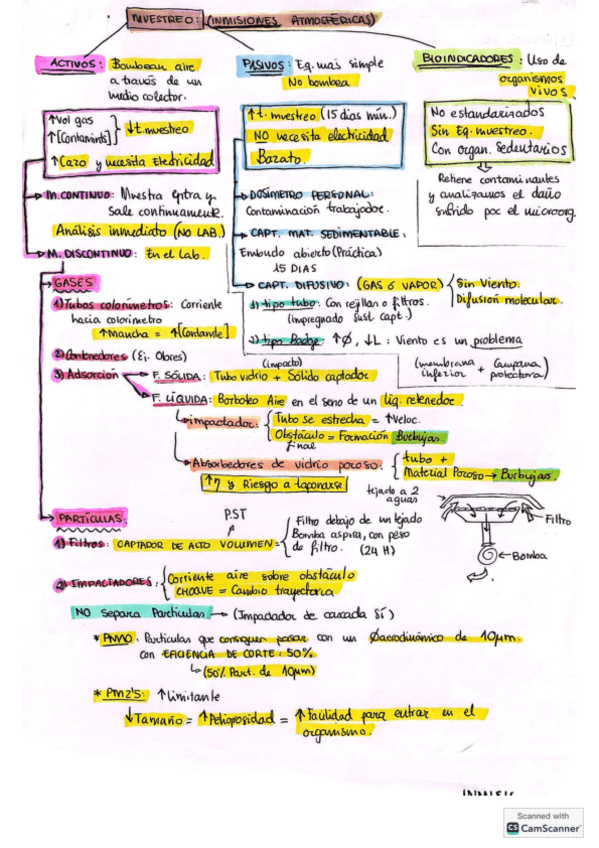 MUESTREO: (INMISIONES ATMOSFÉRICAS)
ACTIVOS: Bombean aire
a través de un
medio colector.
↑Vol gas
↑[Contamints] } ↓t.muestreo
↑Caro y necesita Electricidad
M.CONTINUO: Muestra entra y
sale continuament.
Análisis inmediato (NO LAB.)
M. DISCONTINUO: En el Lab.
PASIVOS: Eq. más simple
No bombea
↑t. muestreo (15 dias min.)
NO necesita electricidad
Barato.
DOSÍMETRO PERSONAL:
Contaminación trabajador.
CAPT. MAT. SEDIMENTABLE.
Embudo abierto (Práctica)
15 DIAS
CAPT. DIFUSIVO: (GAS ó VAPOR) { Sin Viento.
Difusión molecular.
1) tipo tubo: Con rejilla o filtros.
(impregnado Sust. Capt.)
2) tipo Badge: ↑Ø, ↓L : Viento es un problema
(membrana inferior + Campana protectora)
BIOINDICADORES: Uso de
organismos
vivos.
No estandarizados
Sin Eq. muestreo.
Con organ. Sedentarios
Retiene contaminantes
y analizamos el daño
sufrido por el microorg.
GASES
1) Tubos colorímetros: Corriente
hacia colorimetro
↑Mancha = ↑[Contamte]
2) Contenedores (Ej. Olores)
(impacto)
3) Adsorción
F. SÓLIDA: Tubo vidrio + Sólido captador
F. LÍQUIDA: Borboteo Aire en el seno de un líq. retenedor.
impactador: { Tubo se estrecha = ↑Veloc.
Obstáculo = Formación Burbujas.
Final
Absorbedores de vidrio poroso: { tubo +
Material Poroso → Burbujas.
↑η y Riesgo a taponarse
PARTÍCULAS.
P.ST
1) Filtros: CAPTADOR DE ALTO VOLUMEN = { Filtro debajo de un tejado
Bomba aspira, con peso
de filtro. (24 H)
tejado a 2
aguas
Filtro
Bomba
2) IMPACTADORES: { Corriente aire sobre obstáculo
CHOQUE = Cambio trayectoria
NO Separa Partículas → (Impactador de cascada Sí)
* PM10: Partículas que consiguen pasar con un Øaerodinámico de 10µm.
con EFICIENCIA DE CORTE: 50%
(50% Part. de 10µm)
* PM2'5: ↑Limitante
↓Tamaño = ↑Peligrosidad = ↑Facilidad para entrar en el
organismo.
Scanned with
CS CamScanner